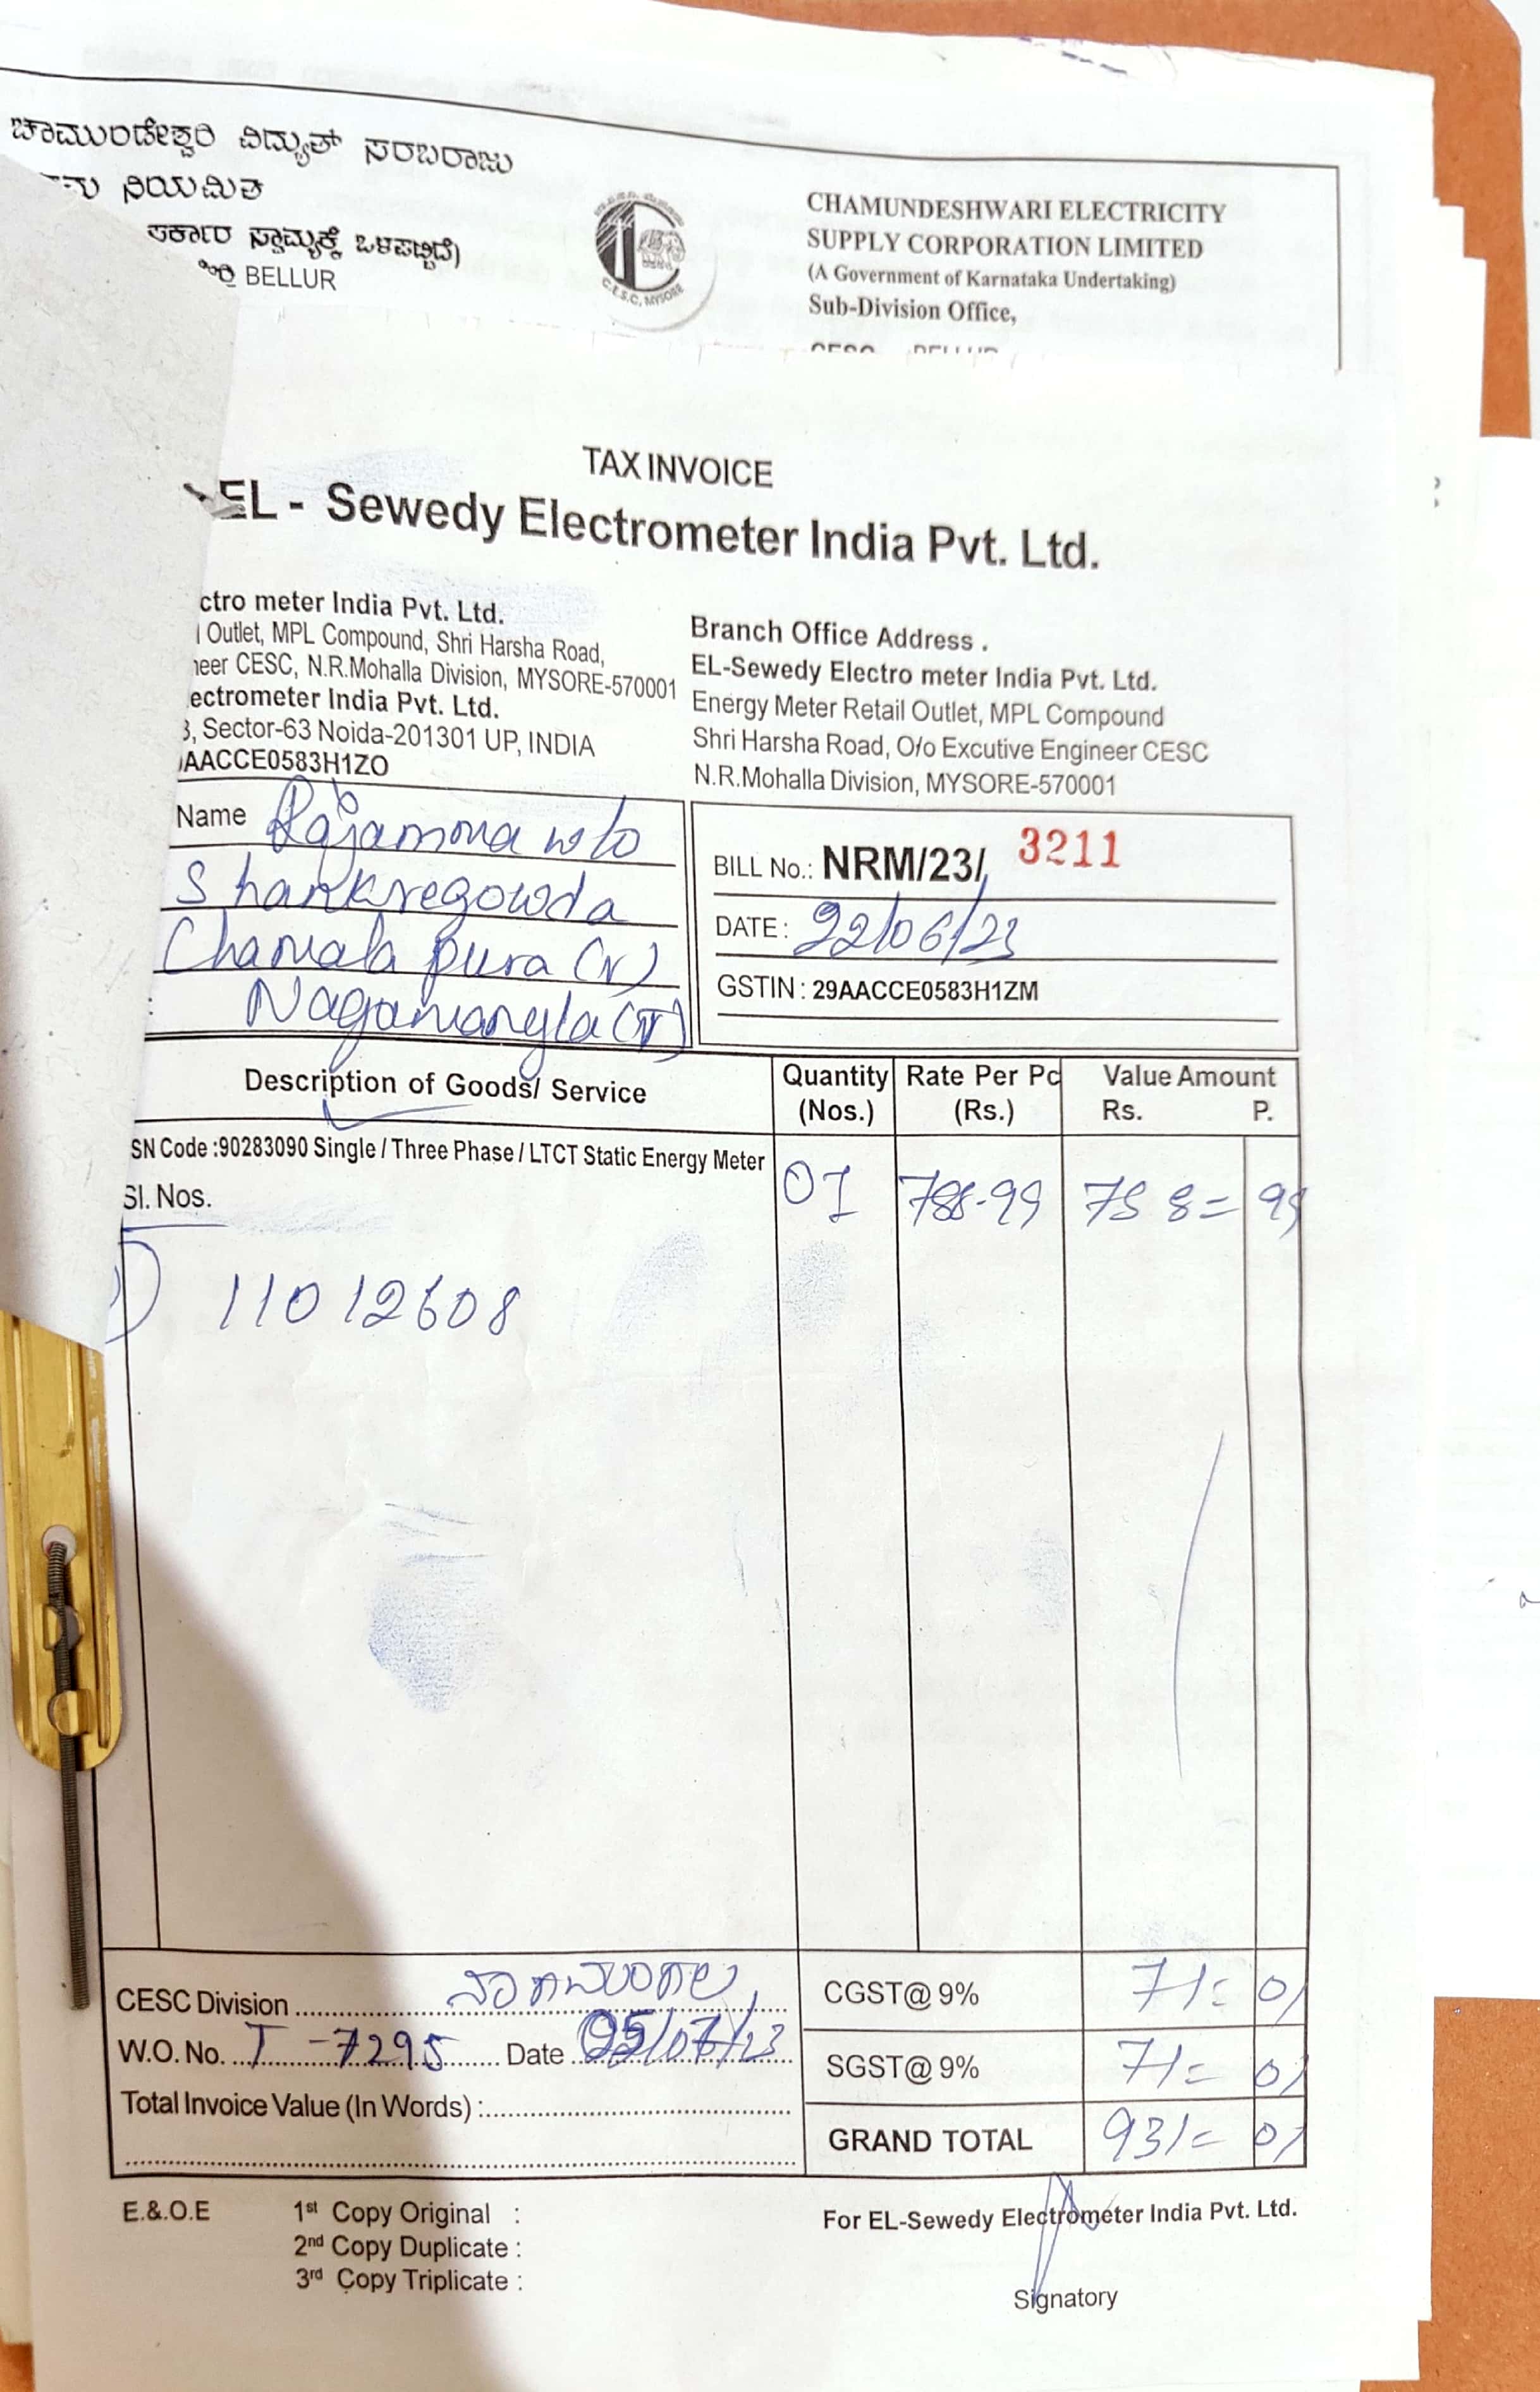 ಚಾಮುಂಡೇಶ್ವರಿ ವಿದ್ಯುತ್ ಸರಬರಾಜು
ನಿಯಮಿತ
ಸರ್ಕಾರ ಸ್ವಾಮ್ಯಕ್ಕೆ ಒಳಪಟ್ಟಿದೆ)
BELLUR
C.E.S.C, MYSORE
CHAMUNDESHWARI ELECTRICITY
SUPPLY CORPORATION LIMITED
(A Government of Karnataka Undertaking)
Sub-Division Office,
TAX INVOICE
EL - Sewedy Electrometer India Pvt. Ltd.
ctro meter India Pvt. Ltd.
Outlet, MPL Compound, Shri Harsha Road,
neer CESC, N.R.Mohalla Division, MYSORE-570001
ectrometer India Pvt. Ltd.
3, Sector-63 Noida-201301 UP, INDIA
AACCE0583H1ZO
Branch Office Address .
EL-Sewedy Electro meter India Pvt. Ltd.
Energy Meter Retail Outlet, MPL Compound
Shri Harsha Road, O/o Excutive Engineer CESC
N.R.Mohalla Division, MYSORE-570001
Name Rajamma w/o
Shankregowda
Chamala pura (v)
Nagamangla (T)
BILL No.: NRM/23/ 3211
DATE: 22/06/23
GSTIN : 29AACCE0583H1ZM
Description of Goods/ Service Quantity (Nos.) Rate Per Pc (Rs.) Value Amount Rs. P.
SN Code :90283090 Single / Three Phase / LTCT Static Energy Meter 01 788-99 788= 99
Sl. Nos.
11012608
CESC Division ನಾಗಮಂಗಲ
W.O. No. T-7295 Date /23
Total Invoice Value (In Words) :
CGST@ 9% 71= 01
SGST@ 9% 71= 01
GRAND TOTAL 931= 01
E.&.O.E
1st Copy Original :
2nd Copy Duplicate :
3rd Copy Triplicate :
For EL-Sewedy Electrometer India Pvt. Ltd.
Signatory